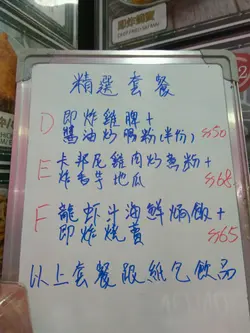 精選套餐
D 即炸雞脾+
醬油炒鴨粉(半份) $50
E 卡邦尼雞肉炒意粉+
炸毛芋地瓜 $68
F 龍虾汁海鮮焗飯+
即炸燒賣 $65
以上套餐跟紙包飲品